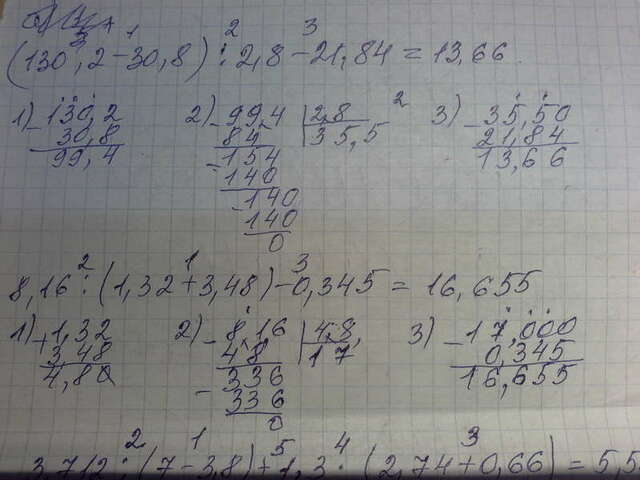 (130,2-30,8):2,8-21,84=13,66
1) 130,2 2) 99,4 2,8 3) 35,50
30,8 84 35,5 21,84
99,4 154 13,66
140
140
140
0
8,16:(1,32+3,48)-0,345=16,655
1) 1,32 2) 8,16 4,8 3) 17,000
3,48 48 17 0,345
4,80 336 16,655
336
0
3,712:(7-3,8)+1,3·(2,74+0,66)=5,5